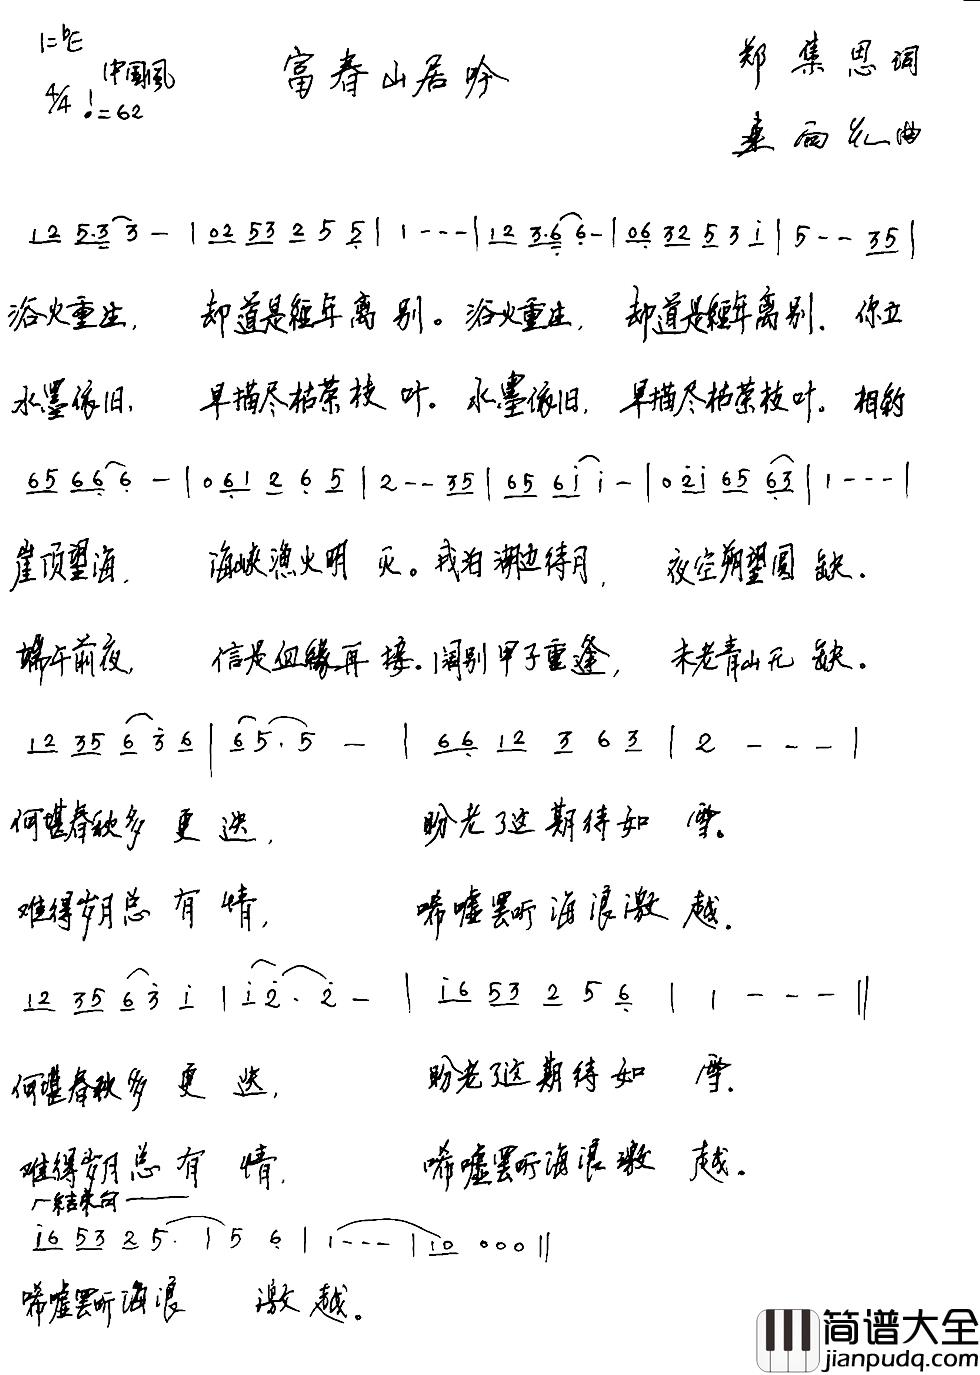 1=♭E
中国风
4/4 ♩=62
富春山居吟
郑集思词
桑雨红曲
1 2 5·3 3 - | 0 2 5 3 2 5 5 | 1 - - - | 1 2 3·6 6 - | 0 6 3 2 5 3 i | 5 - - 3 5 |
浴火重生， 却道是經年离别。浴火重生， 却道是經年离别．你立
水墨依旧， 早描尽枯荣枝叶。水墨依旧， 早描尽枯荣枝叶。相約
6 5 6 6 6 - | 0 6 1 2 6 5 | 2 - - 3 5 | 6 5 6 i i - | 0 2 i 6 5 6 3 | 1 - - - |
崖顶望海， 海峡漁火明灭。我泊湖边待月， 夜空朔望圆缺．
端午前夜， 信是血緣再接．阔别甲子重逢， 未老青山无缺。
1 2 3 5 6 3 6 | 6 5· 5 - | 6 6 1 2 3 6 3 | 2 - - - |
何堪春秋多更迭， 盼老了这期待如雪。
难得岁月总有情， 唏嘘罢听海浪激越．
1 2 3 5 6 3 i | i 2· 2 - | i 6 5 3 2 5 6 | 1 - - - ||
何堪春秋多更迭， 盼老了这期待如雪．
难得岁月总有情， 唏嘘罢听海浪激越。
结束句
i 6 5 3 2 5· | 5 6 | 1 - - - | 1 0 0 0 0 ||
唏嘘罢听海浪 激越。
简谱大全
jianpudq.com